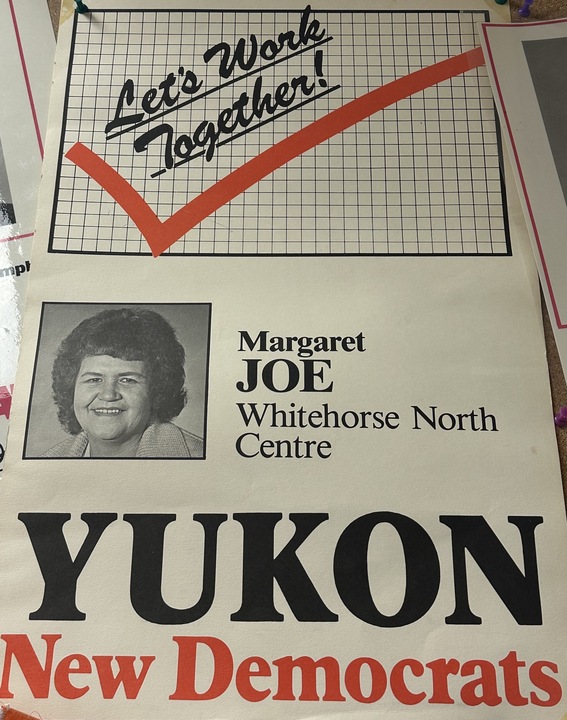 Let's Work
Together!
Margaret
JOE
Whitehorse North
Centre
YUKON
New Democrats